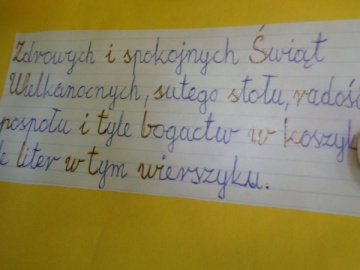 Zdrowych i spokojnych Świąt
Wielkanocnych, sutego stołu, radoś
pospołu i tyle bogactw w koszyk
le liter w tym wierszyku.